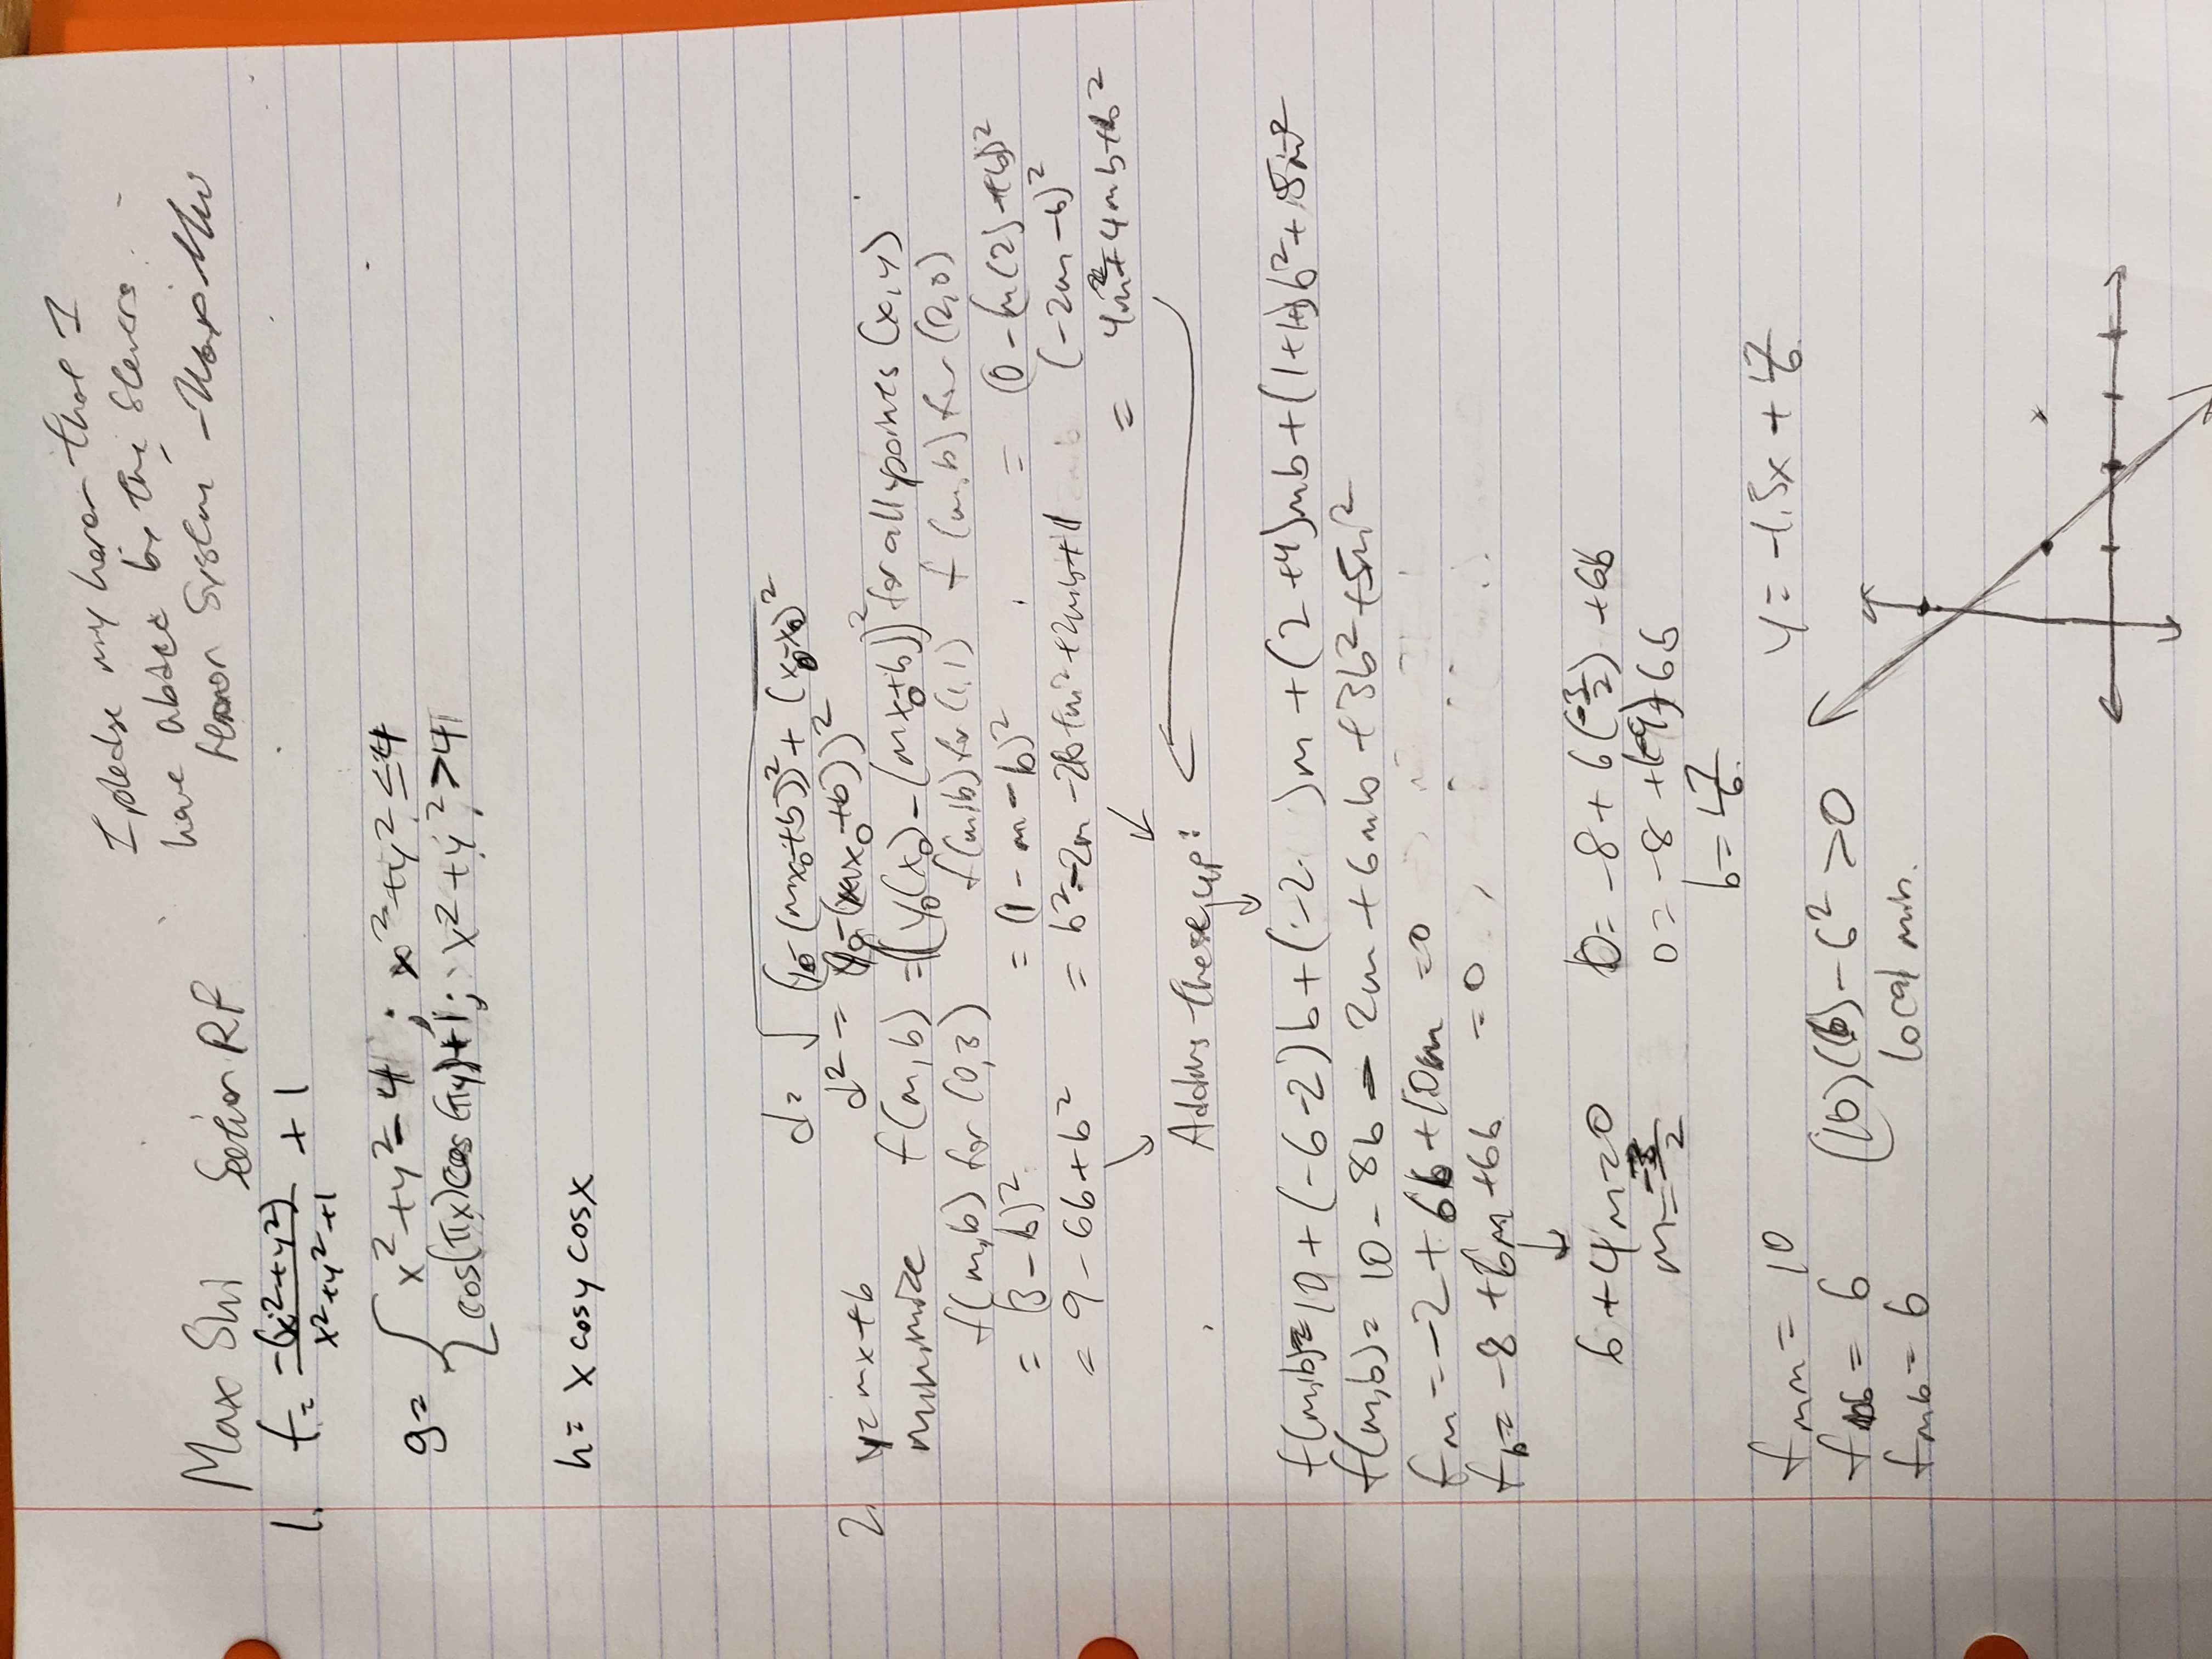 I pledge my honor that I
have abided by the Stevens
Honor System - Max Shi
Max Shi Section RF
1. f = -(x²+y²)/(x²+y²+1) + 1
g = { x²+y²-4 ; x²+y² ≤ 4
cos(πx)cos(πy)+1 ; x²+y² > 4
h = x cosy cosx
d = √((y₀-(mx₀+b))² + (x₀-x₀)²)
d² = (y₀-(mx₀+b))²
2. y=mx+b
minimize f(m,b) = (y₀(x₀)-(mx₀+b))² for all points (x,y)
f(m,b) for (0,3) f(m,b) for (1,1) f(m,b) for (2,0)
= (3-b)² = (1-m-b)² = (0-(m(2)+b))²
= 9-6b+b² = b²-2m-2b+m²+2mb+1 (-2m-b)²
= 4m²+4mb+b²
Adding these up:
f(m,b)= 10+(-6-2)b+(-2 )m+(2+4)mb+(1+1+1)b²+5m²
f(m,b)= 10-8b-2m+6mb+3b²+5m²
fm = -2+6b+10m =0
fb= -8+6m+6b =0
6+4m=0 0= -8+6(-3/2)+6b
m=-3/2 0= -8+(-9)+6b
b=17/6
fmm = 10 y= -1.5x+17/6
fbb = 6 (10)(6)-6²>0
fmb = 6 local min.